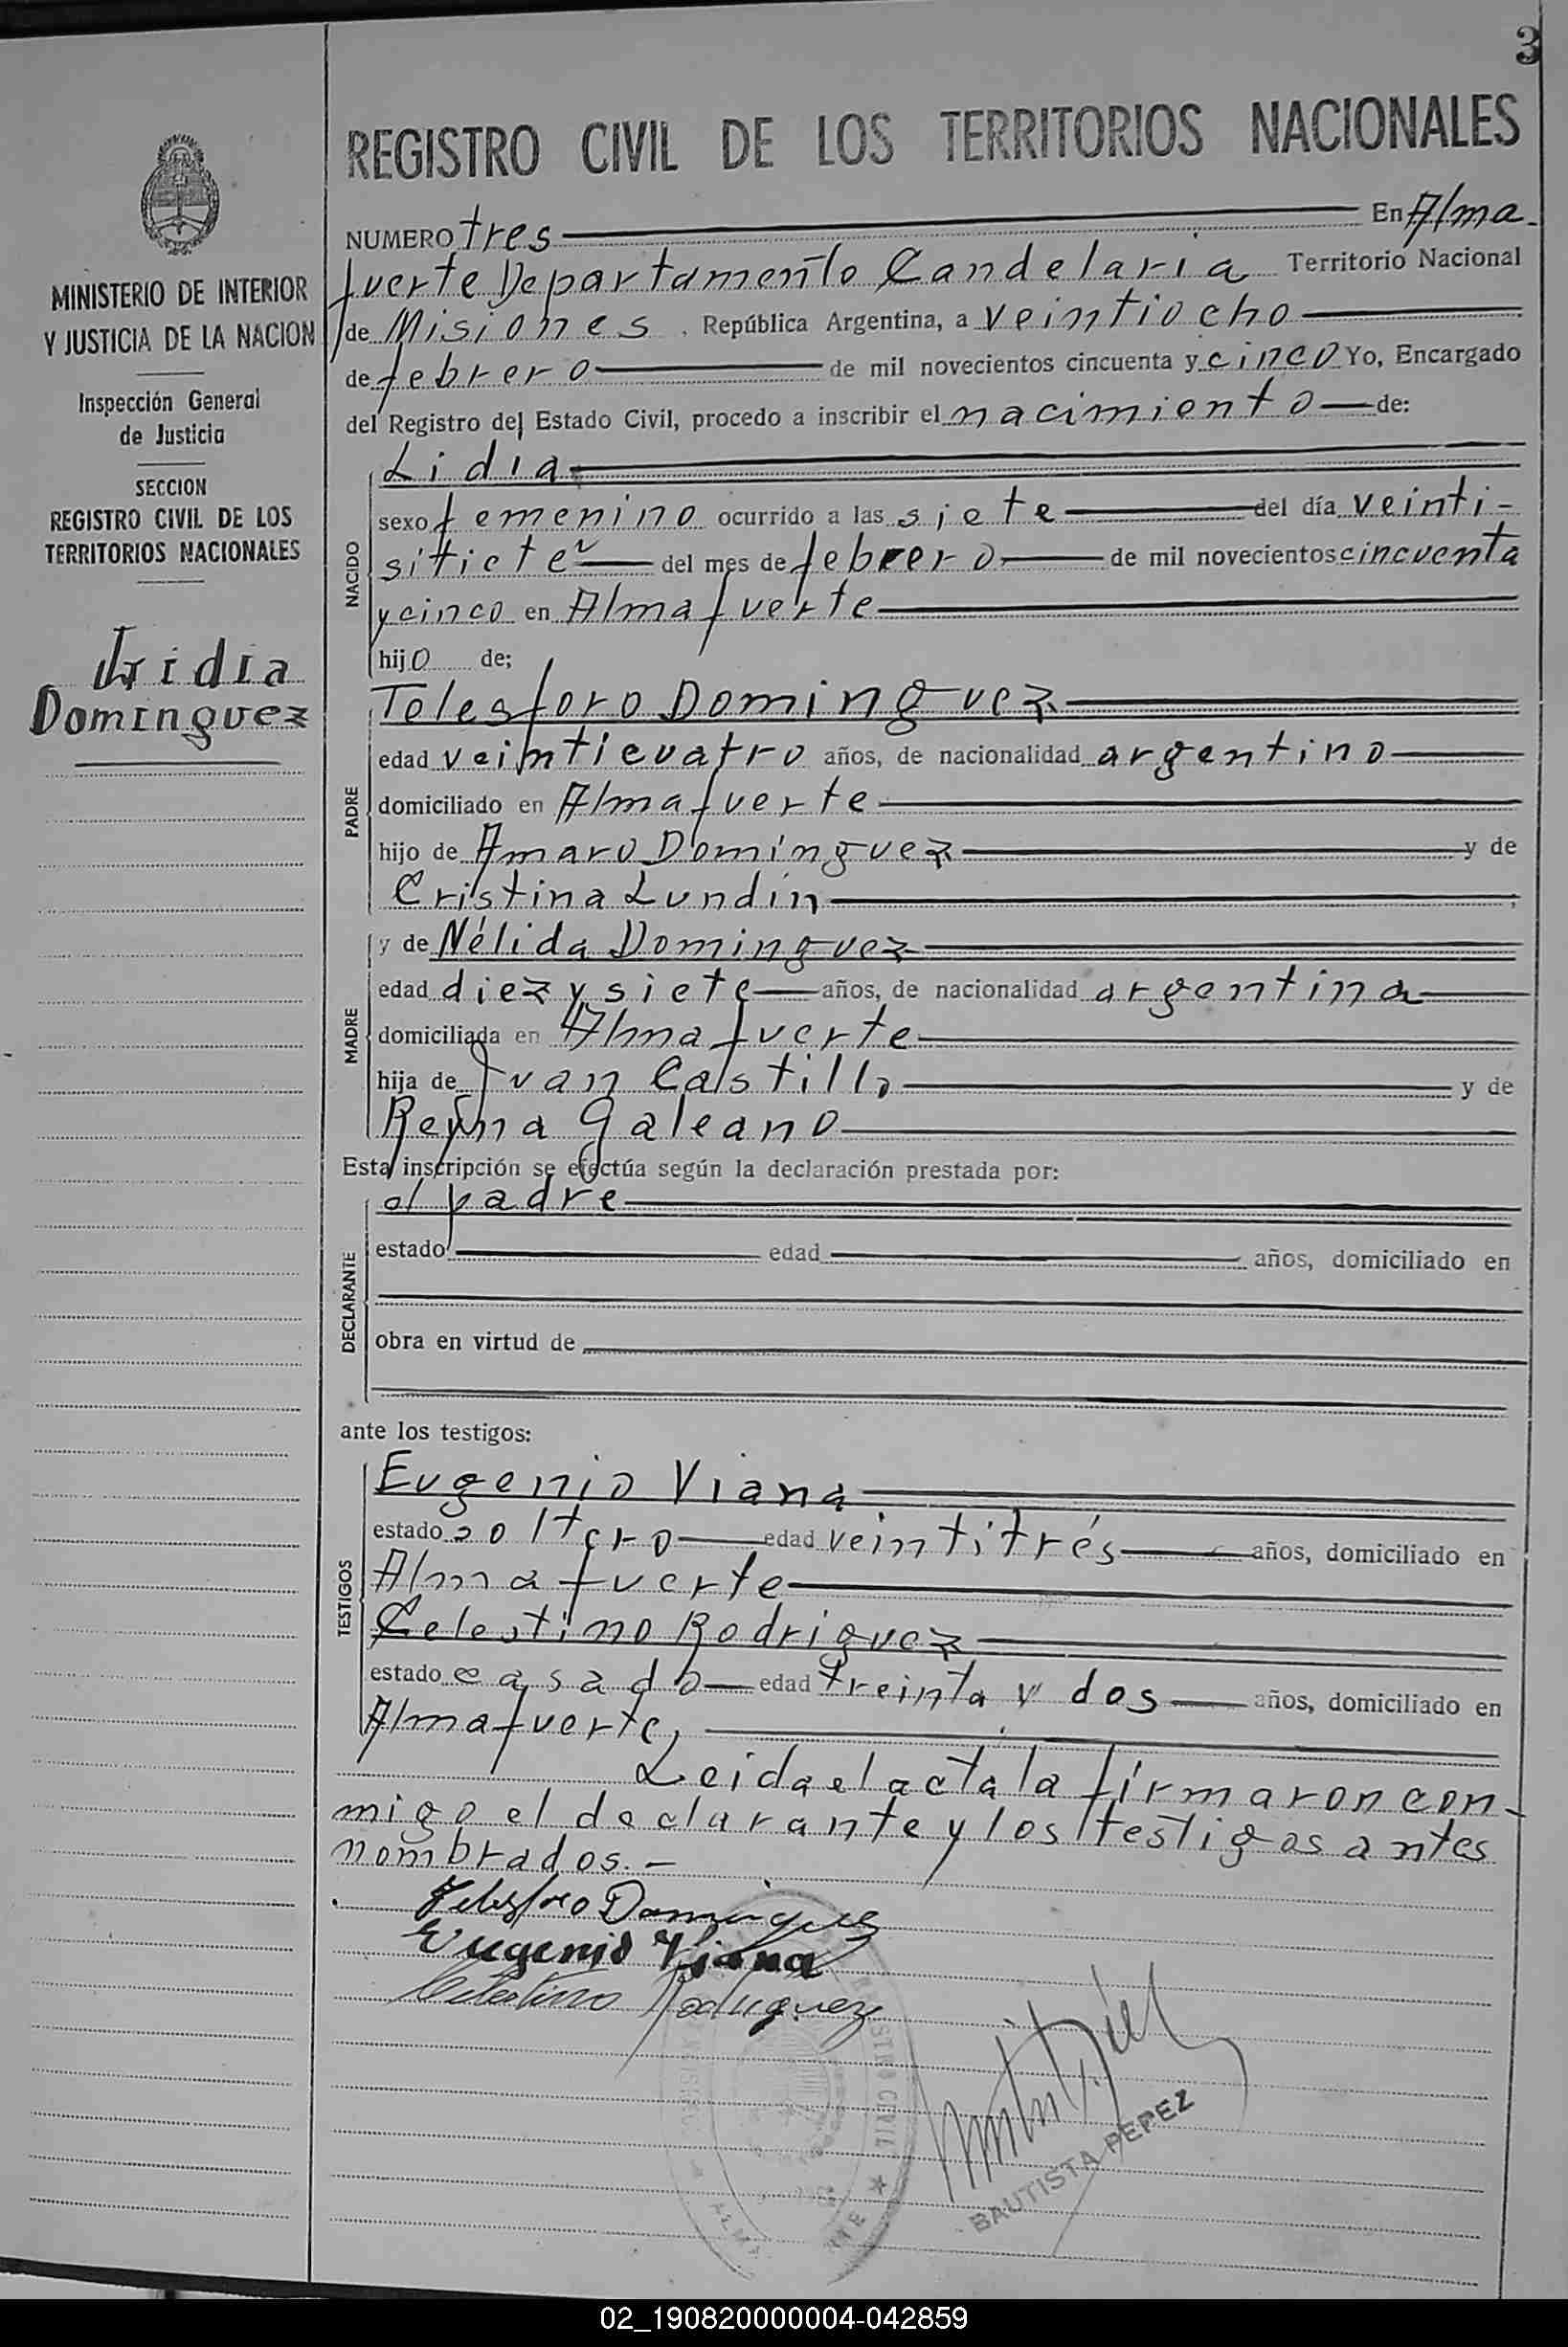 3
REGISTRO CIVIL DE LOS TERRITORIOS NACIONALES
MINISTERIO DE INTERIOR
Y JUSTICIA DE LA NACION
Inspección General
de Justicia
SECCION
REGISTRO CIVIL DE LOS
TERRITORIOS NACIONALES
Lidia
Dominguez
NUMERO tres En Alma-
fuerte Departamento Candelaria Territorio Nacional
de Misiones. República Argentina, a veintiocho
de febrero de mil novecientos cincuenta y cinco Yo, Encargado
del Registro del Estado Civil, procedo a inscribir el nacimiento de:
NACIDO
Lidia
sexo femenino ocurrido a las siete del día veinti-
del mes de febrero de mil novecientos cincuenta
y cinco en Almafuerte
hijo de;
PADRE
Telesforo Dominguez
edad veinticuatro años, de nacionalidad argentino
domiciliado en Almafuerte
hijo de Amaro Dominguez y de
Cristina Lundin
MADRE
y de Nélida Dominguez
edad diez y siete años, de nacionalidad argentina
domiciliada en Almafuerte
hija de Juan Castillo y de
Reyna Galeano
Esta inscripción se efectúa según la declaración prestada por:
DECLARANTE
el padre
estado edad años, domiciliado en
obra en virtud de
ante los testigos:
TESTIGOS
Eugenio Viana
estado soltero edad veintitrés años, domiciliado en
Almafuerte
Celestino Rodriguez
estado casado edad treinta y dos años, domiciliado en
Almafuerte,
Leida el acta la firmaron con-
migo el declarante y los testigos antes
nombrados.-
Telesforo Dominguez
Eugenio Viana
Celestino Rodriguez
BAUTISTA PEPEZ
02_190820000004-042859